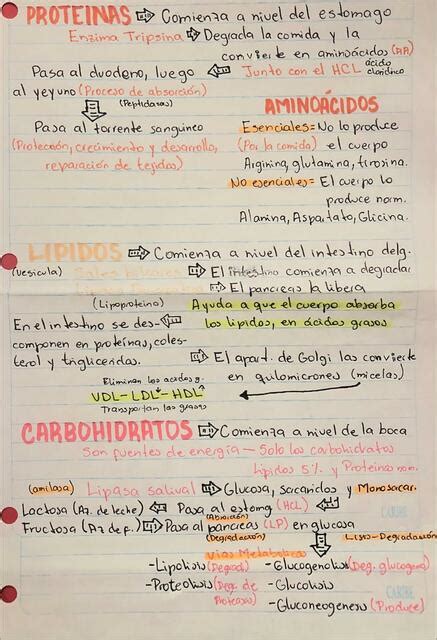 PROTEINAS ⇨ Comienza a nivel del estomago
Enzima Tripsina ⇨ Degrada la comida y la
convierte en aminoácidos (AA)
Pasa al duodeno, luego ⇦ Junto con el HCL ácido clorídrico
al yeyuno (Proceso de absorción)
(Peptidasas)
Pasa al torrente sanguineo
(Protección, crecimiento y desarrollo,
reparación de tejidos)
AMINOÁCIDOS
Esenciales = No lo produce
(Por la comida) el cuerpo
Arginina, glutamina, tirosina.
No esenciales = El cuerpo lo
produce norm.
Alanina, Aspartato, Glicina.
LIPIDOS ⇨ Comienza a nivel del intestino delg.
(Vesicula) Sales biliares ⇨ El intestino comienza a degradar
Lipasa Pancreatica ⇨ El pancreas la libera
(Lipoproteina) Ayuda a que el cuerpo absorba
los lipidos, en ácidos grasos
En el intestino se des- ⇦
componen en proteínas, coles-
terol y trigliceridas.
⇨ El apart. de Golgi las convierte
en quilomicrones (micelas)
Eliminan los acidos g.
VDL-LDL-HDL
Transportan las grasas
CARBOHIDRATOS ⇨ Comienza a nivel de la boca
Son fuentes de energía - Solo los carbohidratos
Lipidos 5% y Proteinas nom.
(amilasa) Lipasa salival ⇨ Glucosa, sacaridos y Monosacar.
Lactosa (Az. de leche) ⇦ Pasa al estomg (HCL) ⇦
(Absorción)
Fructosa (Az de f.) ⇨ Pasa al pancreas (LP) en glucosa
(Degradación) Lisis-Degradación
Vias Metabolicas
-Lipolisis (Degrad) -Glucogenolisis (Deg. glucogeno)
-Proteolisis (Deg. de Proteinas) -Glucolisis
-Gluconeogenesis (Produce)
CARIBE
CARIBE